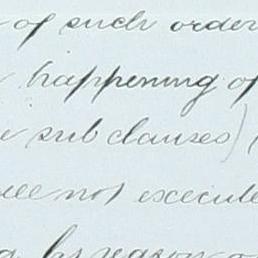 of such order
happening of
sub clauses)
not execute
by reason o